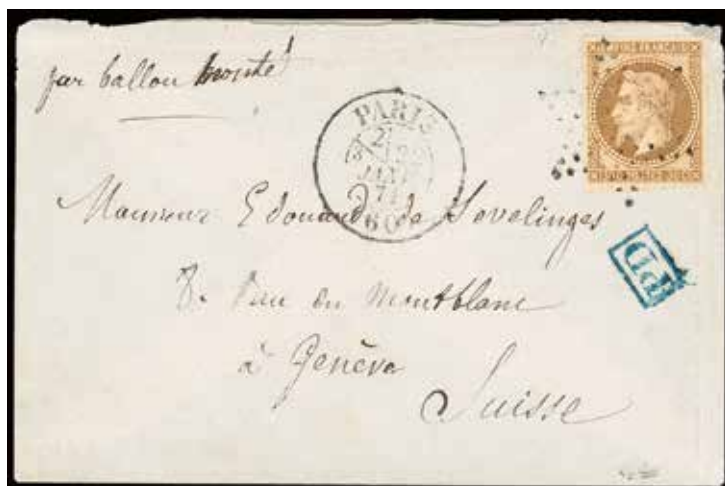 par ballon monté
EMPIRE FRANÇAIS
PARIS
2
JANV
71
60
Monsieur Edouard de Sevelinges
8. Rue du Montblanc
à Genève
Suisse
PD